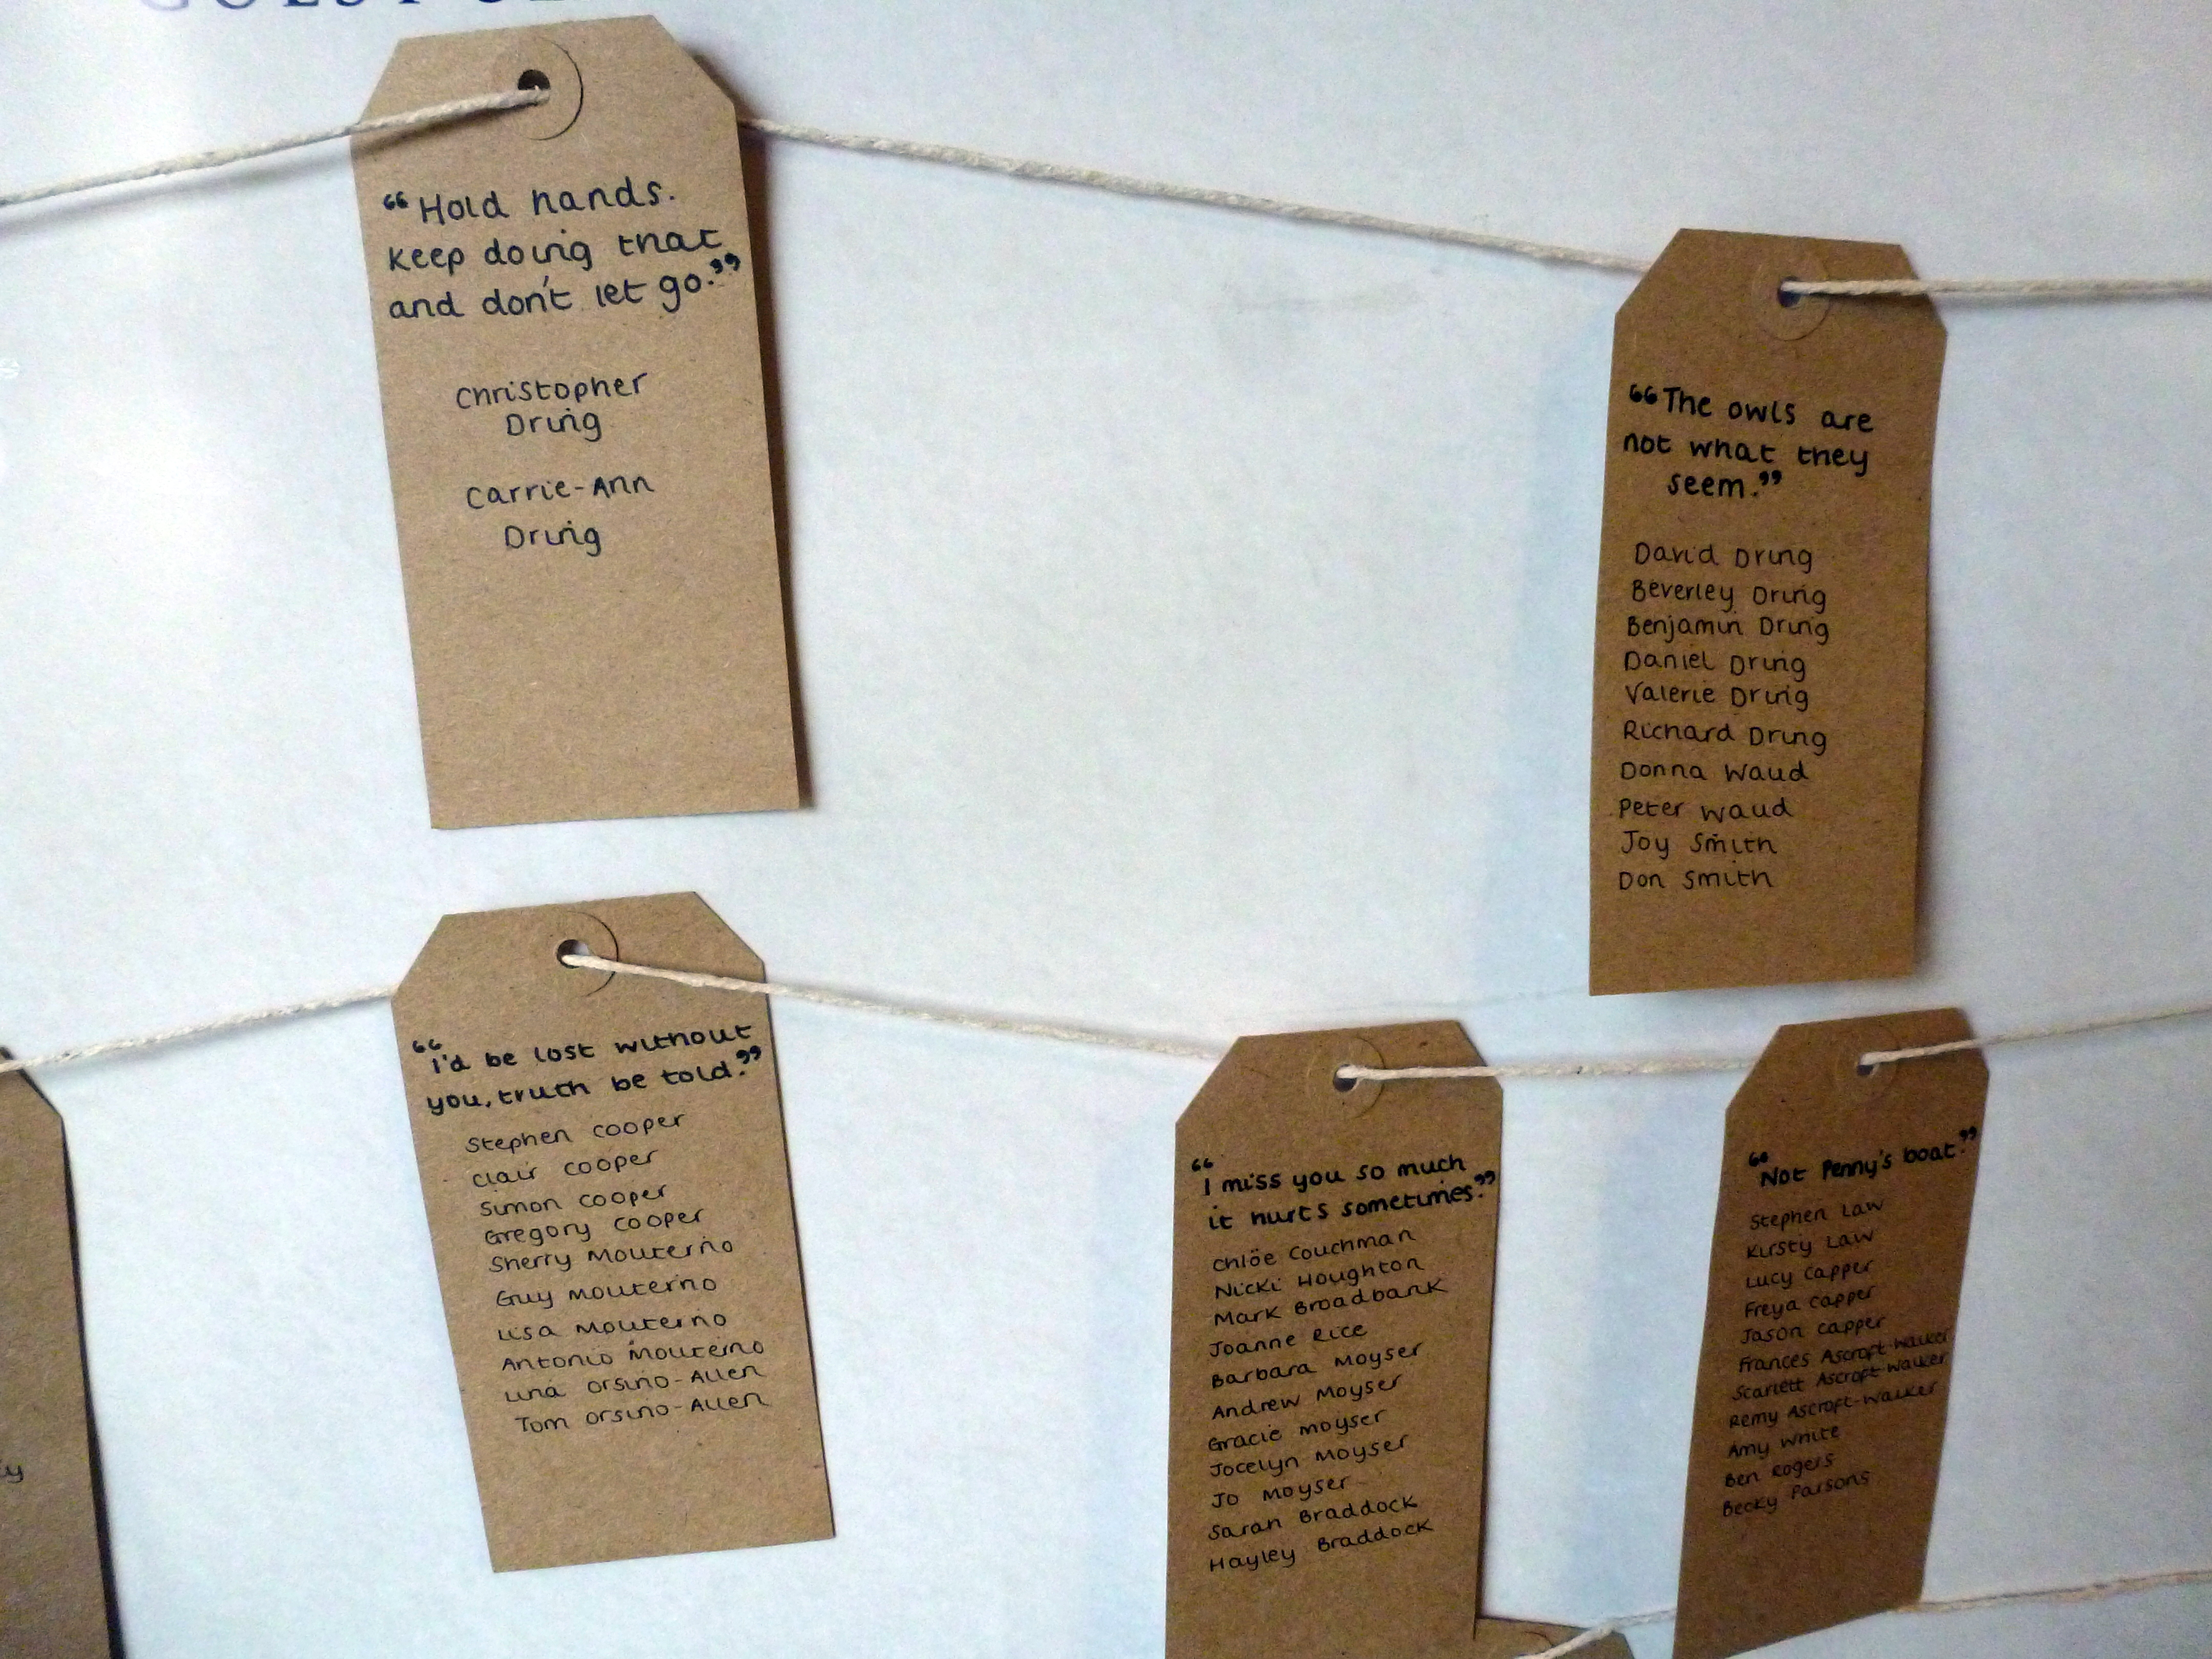 “Hold hands.
Keep doing that
and don't let go.”
Christopher
Dring
Carrie-Ann
Dring
“The owls are
not what they
seem.”
David Dring
Beverley Dring
Benjamin Dring
Daniel Dring
Valerie Dring
Richard Dring
Donna Waud
Peter Waud
Joy Smith
Don Smith
“I'd be lost without
you, truth be told.”
Stephen Cooper
Clair Cooper
Simon Cooper
Gregory Cooper
Sherry Mouterno
Guy Mouterno
Lisa Mouterno
Antonio Mouterno
Lina Orsino-Allen
Tom Orsino-Allen
“I miss you so much
it hurts sometimes.”
Chlöe Couchman
Nicki Houghton
Mark Broadbank
Joanne Rice
Barbara Moyser
Andrew Moyser
Gracie Moyser
Jocelyn Moyser
Jo Moyser
Sarah Braddock
Hayley Braddock
“Not Penny's boat.”
Stephen Law
Kirsty Law
Lucy Capper
Freya Capper
Jason Capper
Frances Ascroft-Walker
Scarlett Ascroft-Walker
Remy Ascroft-Walker
Amy White
Ben Rogers
Becky Parsons